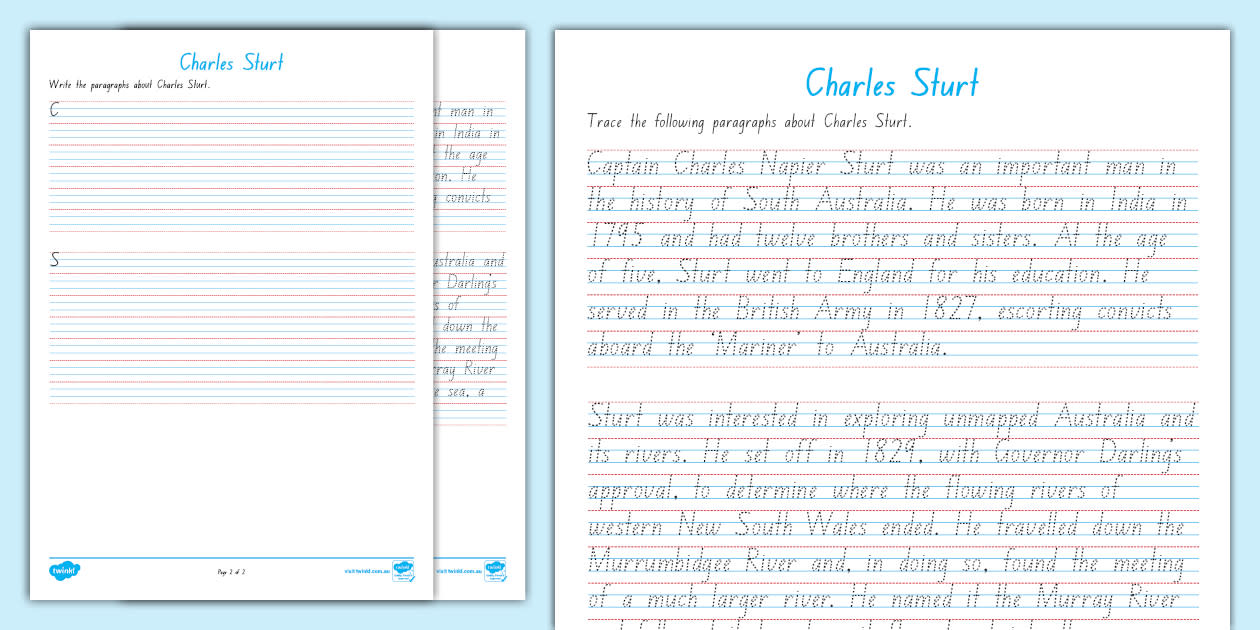 Charles Sturt
Write the paragraphs about Charles Sturt.
C
S
twinkl
Page 2 of 2
visit twinkl.com.au
nt man in
in India in
the age
on. He
convicts
ustralia and
r Darling's
s of
down the
he meeting
rray River
e sea, a
visit twinkl.com.au
Charles Sturt
Trace the following paragraphs about Charles Sturt.
Captain Charles Napier Sturt was an important man in
the history of South Australia. He was born in India in
1795 and had twelve brothers and sisters. At the age
of five, Sturt went to England for his education. He
served in the British Army in 1827, escorting convicts
aboard the 'Mariner' to Australia.
Sturt was interested in exploring unmapped Australia and
its rivers. He set off in 1829, with Governor Darling's
approval, to determine where the flowing rivers of
western New South Wales ended. He travelled down the
Murrumbidgee River and, in doing so, found the meeting
of a much larger river. He named it the Murray River